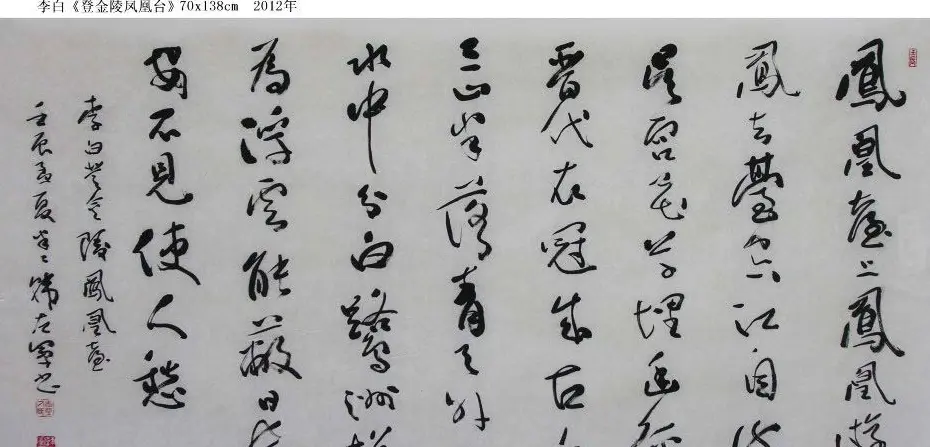 李白《登金陵凤凰台》70x138cm 2012年
鳳凰臺上鳳凰遊
鳳去臺空江自流
吳宮花草埋幽徑
晉代衣冠成古
三山半落青天外
水中分白鷺洲總
為浮雲能蔽日長
安不見使人愁
李白登金陵鳳凰臺
壬辰孟夏